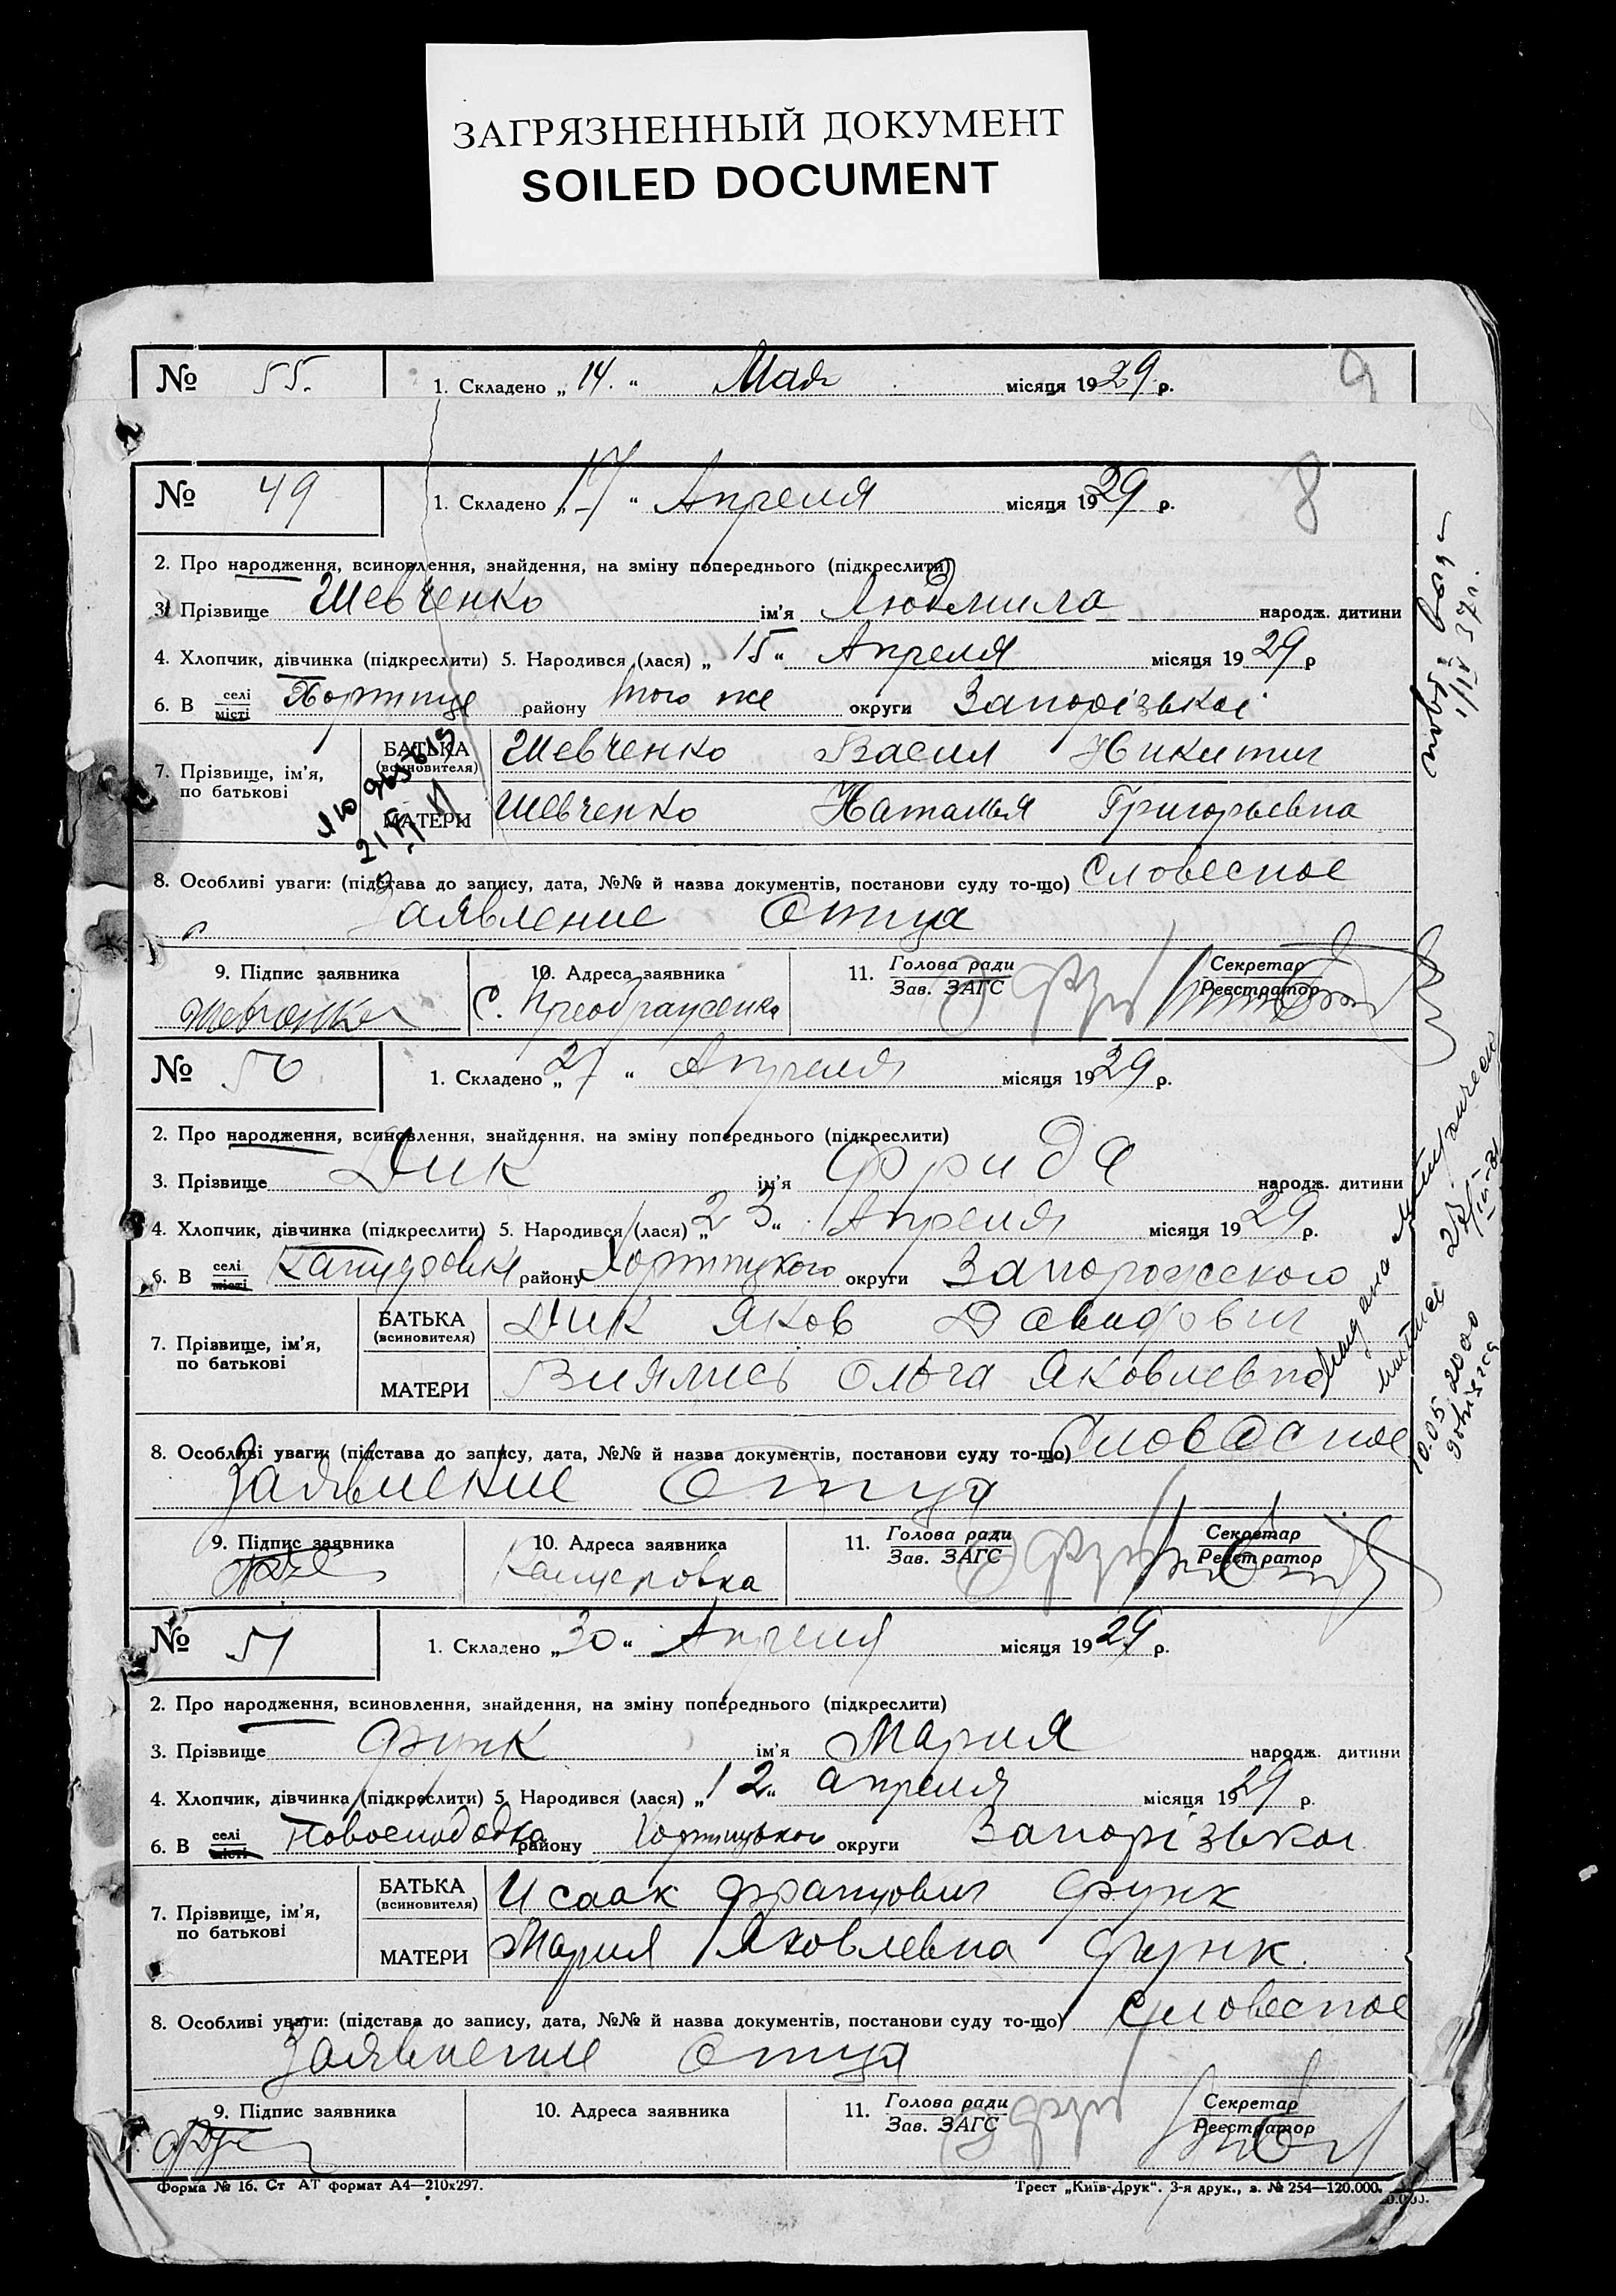 ЗАГРЯЗНЕННЫЙ ДОКУМЕНТ
SOILED DOCUMENT
№ 55. 1. Складено „ 14. “ Мая місяця 1929 р. 9
№ 49 1. Складено „ 17 “ Апреля місяця 1929 р. 8
2. Про народження, всиновлення, знайдення, на зміну попереднього (підкреслити)
3. Прізвище Шевченко ім'я Людмила народж. дитини
4. Хлопчик, дівчинка (підкреслити) 5. Народився (лася) „ 15 “ Апреля місяця 1929 р
6. В селі місті Хортице району того же округи Запорізької
7. Прізвище, ім'я, по батькові
БАТЬКА (всиновителя) Шевченко Васил Никитич
МАТЕРИ Шевченко Наталья Григорьевна
8. Особливі уваги: (підстава до запису, дата, №№ й назва документів, постанови суду то-що) Словесное
Заявление Отца
9. Підпис заявника 10. Адреса заявника 11. Голова ради Зав. ЗАГС Секретар Реєстратор
Шевченко С.
№ 50 1. Складено „ 27 “ Апреля місяця 1929 р.
2. Про народження, всиновлення, знайдення, на зміну попереднього (підкреслити)
3. Прізвище Дик ім'я Фрида народж. дитини
4. Хлопчик, дівчинка (підкреслити) 5. Народився (лася) „ 23 “ Апреля місяця 1929 р.
6. В селі місті району Хортицкого округи Запорожского
7. Прізвище, ім'я, по батькові
БАТЬКА (всиновителя) Дик Яков Давидович
МАТЕРИ Ольга Яковлевна
8. Особливі уваги: (підстава до запису, дата, №№ й назва документів, постанови суду то-що) Словесное
Заявление Отца
9. Підпис заявника 10. Адреса заявника 11. Голова ради Зав. ЗАГС Секретар Реєстратор
№ 51 1. Складено „ 30 “ Апреля місяця 1929 р.
2. Про народження, всиновлення, знайдення, на зміну попереднього (підкреслити)
3. Прізвище Функ ім'я Мария народж. дитини
4. Хлопчик, дівчинка (підкреслити) 5. Народився (лася) „ 12 “ апреля місяця 1929 р.
6. В селі місті Новослободка району Хортицького округи Запорізької
7. Прізвище, ім'я, по батькові
БАТЬКА (всиновителя) Исаак Францович Функ
МАТЕРИ Мария Яковлевна Функ.
8. Особливі уваги: (підстава до запису, дата, №№ й назва документів, постанови суду то-що) Словесное
Заявление Отца
9. Підпис заявника 10. Адреса заявника 11. Голова ради Зав. ЗАГС Секретар Реєстратор
Форма № 16. Ст АТ формат А4—210х297. Трест „Київ-Друк“. 3-я друк., з. № 254—120.000.
10.05.2000